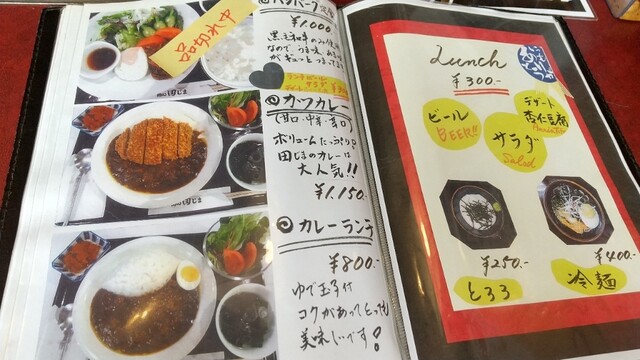 ハンバーグ定食
¥1,000-
黒毛和牛のみ使用
なので うま味
がギュッとつまってます
品切れ中
カツカレー
(甘口・中辛・辛口)
ボリュームたっぷり
田じまのカレーは
大人気!!
¥1,150.-
カレーランチ
¥800.-
ゆで玉子付
コクがあってとっても
美味しいです!
Lunch
¥300.-
ビール
BEER!!
デザート
杏仁豆腐
サラダ
Salad
¥250.-
とろろ
¥400.-
冷麺